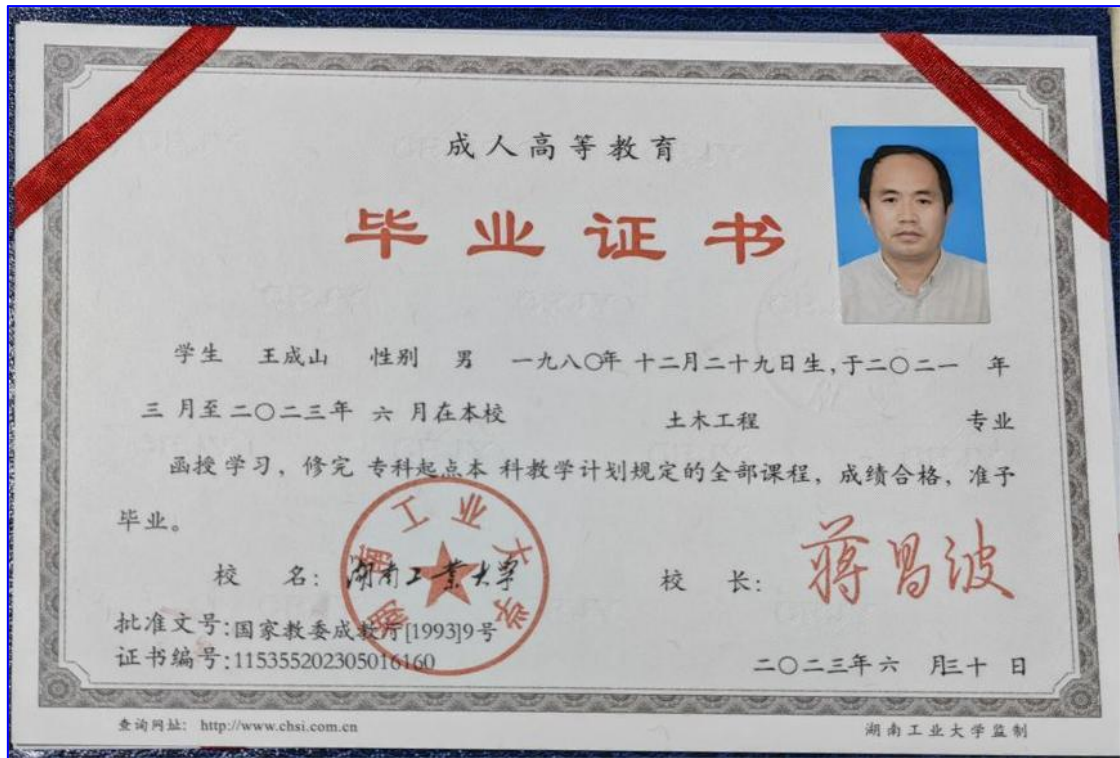 成人高等教育
毕业证书
学生 王成山 性别 男 一九八〇年 十二月二十九日生，于二〇二一 年
三 月至 二〇二三年 六 月在本校 土木工程 专业
函授学习，修完 专科起点本 科教学计划规定的全部课程，成绩合格，准予
毕业。
校 名：湖南工业大学
湖南工业大学
校 长：蒋昌波
批准文号:国家教委成教厅[1993]9号
证书编号:115355202305016160
二〇二三年 六 月三十 日
查询网址: http://www.chsi.com.cn
湖南工业大学监制